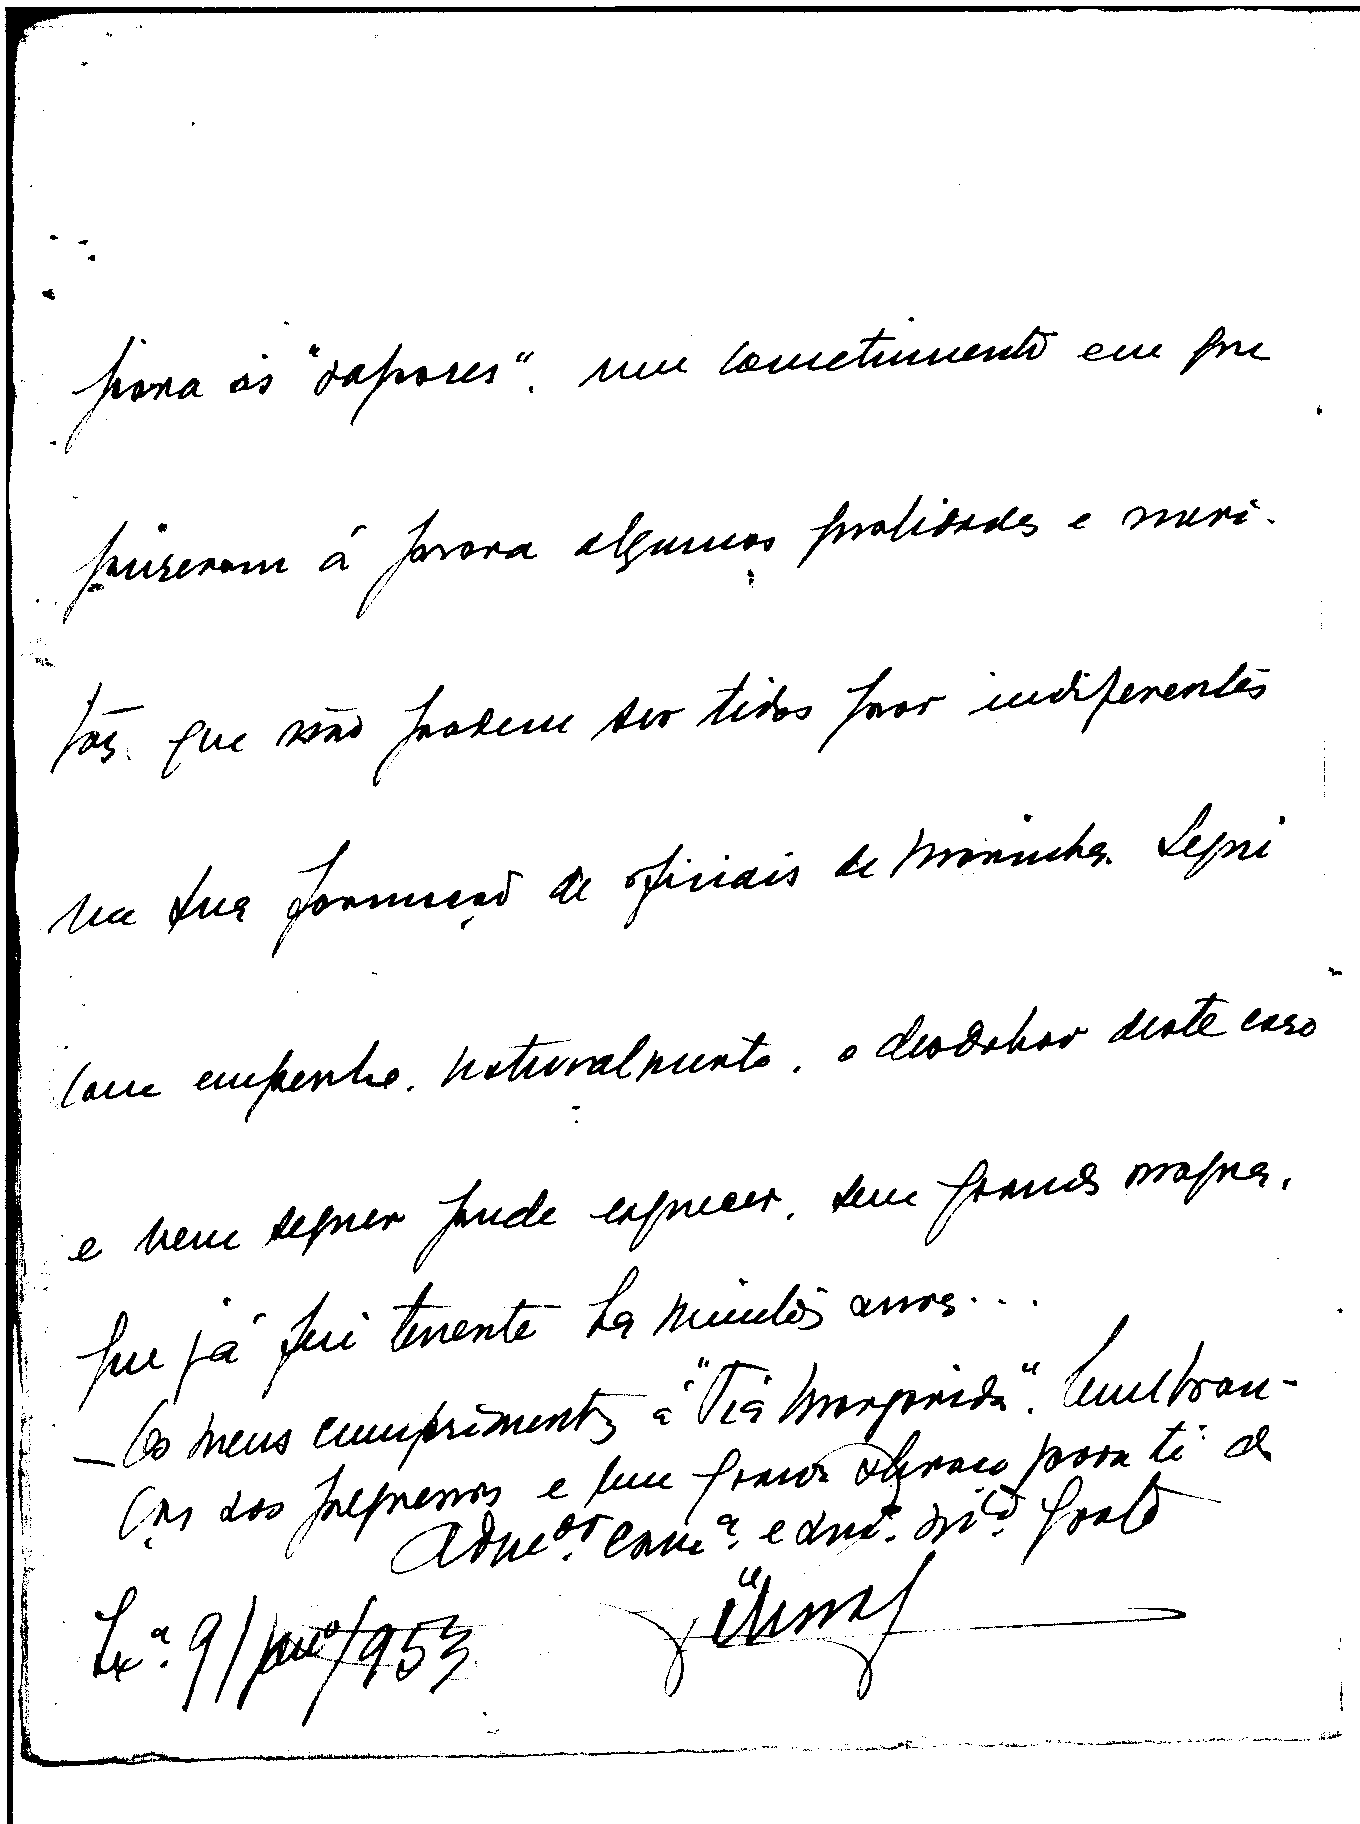 para os "vapores", num cometimento em que
puseram à prova algumas qualidades e méri-
tos, que não podem ser tidos por indiferentes
na sua formação de oficiais de Marinha. Segui
com empenho, naturalmente, o desdobrar deste caso
e nem sequer pude esquecer, sem grande mágoa,
que já fui tenente ha muitos anos...
— Os meus cumprimentos á "Tia Margarida", lembran-
ças aos pequenos e um grande abraço para ti do
Adm.or cam.a e am.o m.to grato
Lx.a 9/jan.o/953